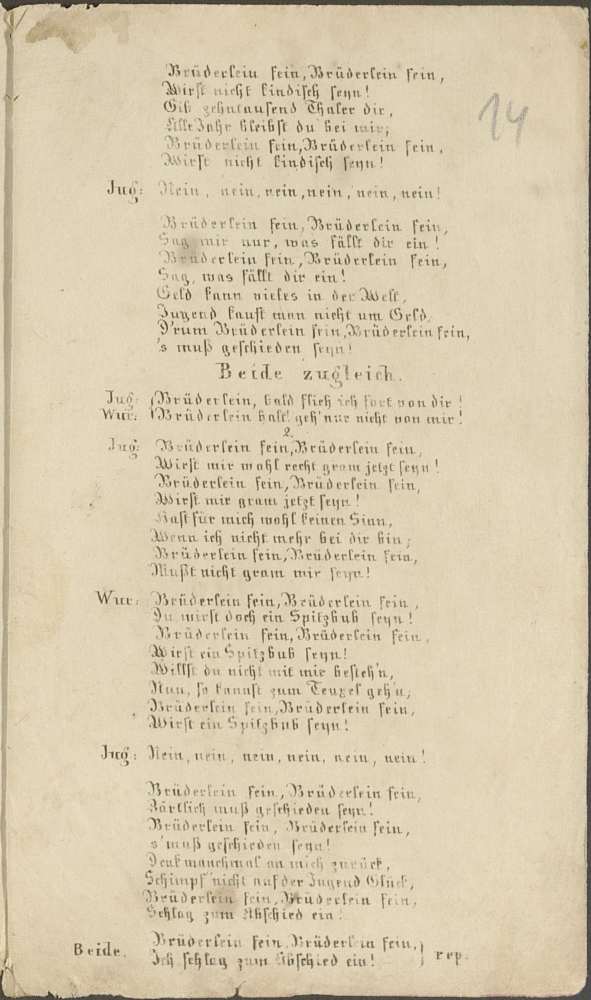 14
Brüderlein fein, Brüderlein fein,
Wirst nicht kindisch seyn!
Gib zehntausend Thaler dir,
Alle Jahr bleibst du bei mir;
Brüderlein fein, Brüderlein fein,
Wirst nicht kindisch seyn!
Jug: Nein, nein, nein, nein, nein, nein!
Brüderlein fein, Brüderlein fein,
Sag mir nur, was fällt dir ein!
Brüderlein fein, Brüderlein fein,
Sag, was fällt dir ein!
Geld kann vieles in der Welt,
Jugend kauft man nicht um Geld,
D'rum Brüderlein fein, Brüderlein fein,
's muß geschieden seyn!
Beide zugleich.
Jug: Brüderlein, bald flieh ich fort von dir!
Wur: Brüderlein halt! geh' nur nicht von mir!
2.
Jug: Brüderlein fein, Brüderlein fein,
Wirst mir wohl recht gram jetzt seyn!
Brüderlein fein, Brüderlein fein,
Wirst mir gram jetzt seyn!
Hast für mich wohl keinen Sinn,
Wenn ich nicht mehr bei dir bin;
Brüderlein fein, Brüderlein fein,
Mußt nicht gram mir seyn!
Wur: Brüderlein fein, Brüderlein fein,
Du wirst doch ein Spitzbub seyn!
Brüderlein fein, Brüderlein fein,
Wirst ein Spitzbub seyn!
Willst du nicht mit mir besteh'n,
Nun, so kannst zum Teuxel geh'n,
Brüderlein fein, Brüderlein fein,
Wirst ein Spitzbub seyn!
Jug: Nein, nein, nein, nein, nein, nein!
Brüderlein fein, Brüderlein fein,
Zärtlich muß geschieden seyn!
Brüderlein fein, Brüderlein fein,
s' muß geschieden seyn!
Denk manchmal an mich zurück,
Schimpf' nicht auf der Jugend Glück,
Brüderlein fein, Brüderlein fein,
Schlag zum Abschied ein!
Beide. Brüderlein fein, Brüderlein fein,
Ich schlag zum Abschied ein! rep.